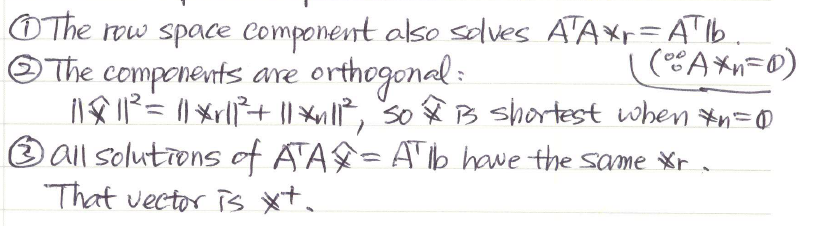 ① The row space component also solves AᵀA𝕩r = Aᵀ𝕓.
② The components are orthogonal: (∵ A𝕩n = 𝟘)
‖𝕩̂‖² = ‖𝕩r‖² + ‖𝕩n‖², so 𝕩̂ is shortest when 𝕩n = 𝟘
③ all solutions of AᵀA𝕩̂ = Aᵀ𝕓 have the same 𝕩r.
That vector is 𝕩⁺.